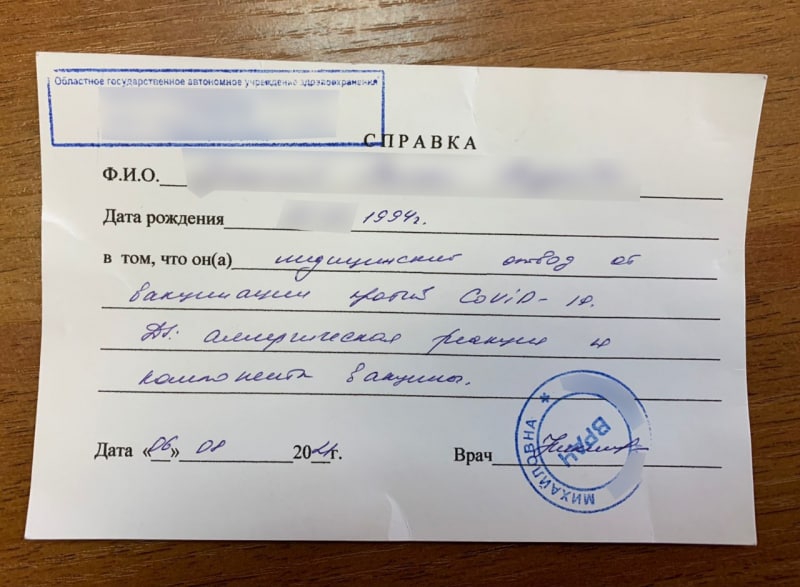 Областное государственное автономное учреждение здравоохранения
СПРАВКА
Ф.И.О.
Дата рождения 1994г.
в том, что он(а) медицинский отвод от
вакцинации против COViD-19.
Ds: аллергическая реакция на
компоненты вакцины.
Дата «06» 08 20 г.
Врач
МИХАЙЛОВНА * ВРАЧ